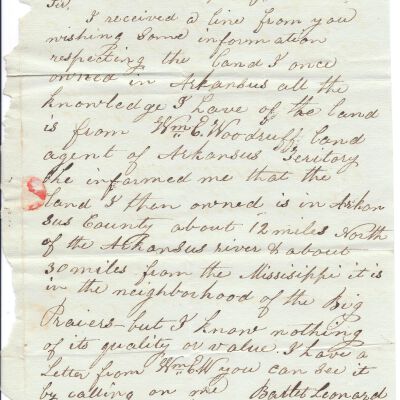 Sir.
I received a line from you
wishing Some information
respecting the land I once
owned in Arkansus all the
knowledge I have of the land
is from Wm. E. Woodruff land
agent of Arkansus Teritory
he informed me that the
land I then owned is in Arkan
sus County about 12 miles North
of the Arkansus river & about
30 miles from the Missisippi it is
in the neighborhood of the Big
Praiers - but I know nothing
of its quality or value. I have a
Letter from Wm E W you can see it
by calling on me Leonard